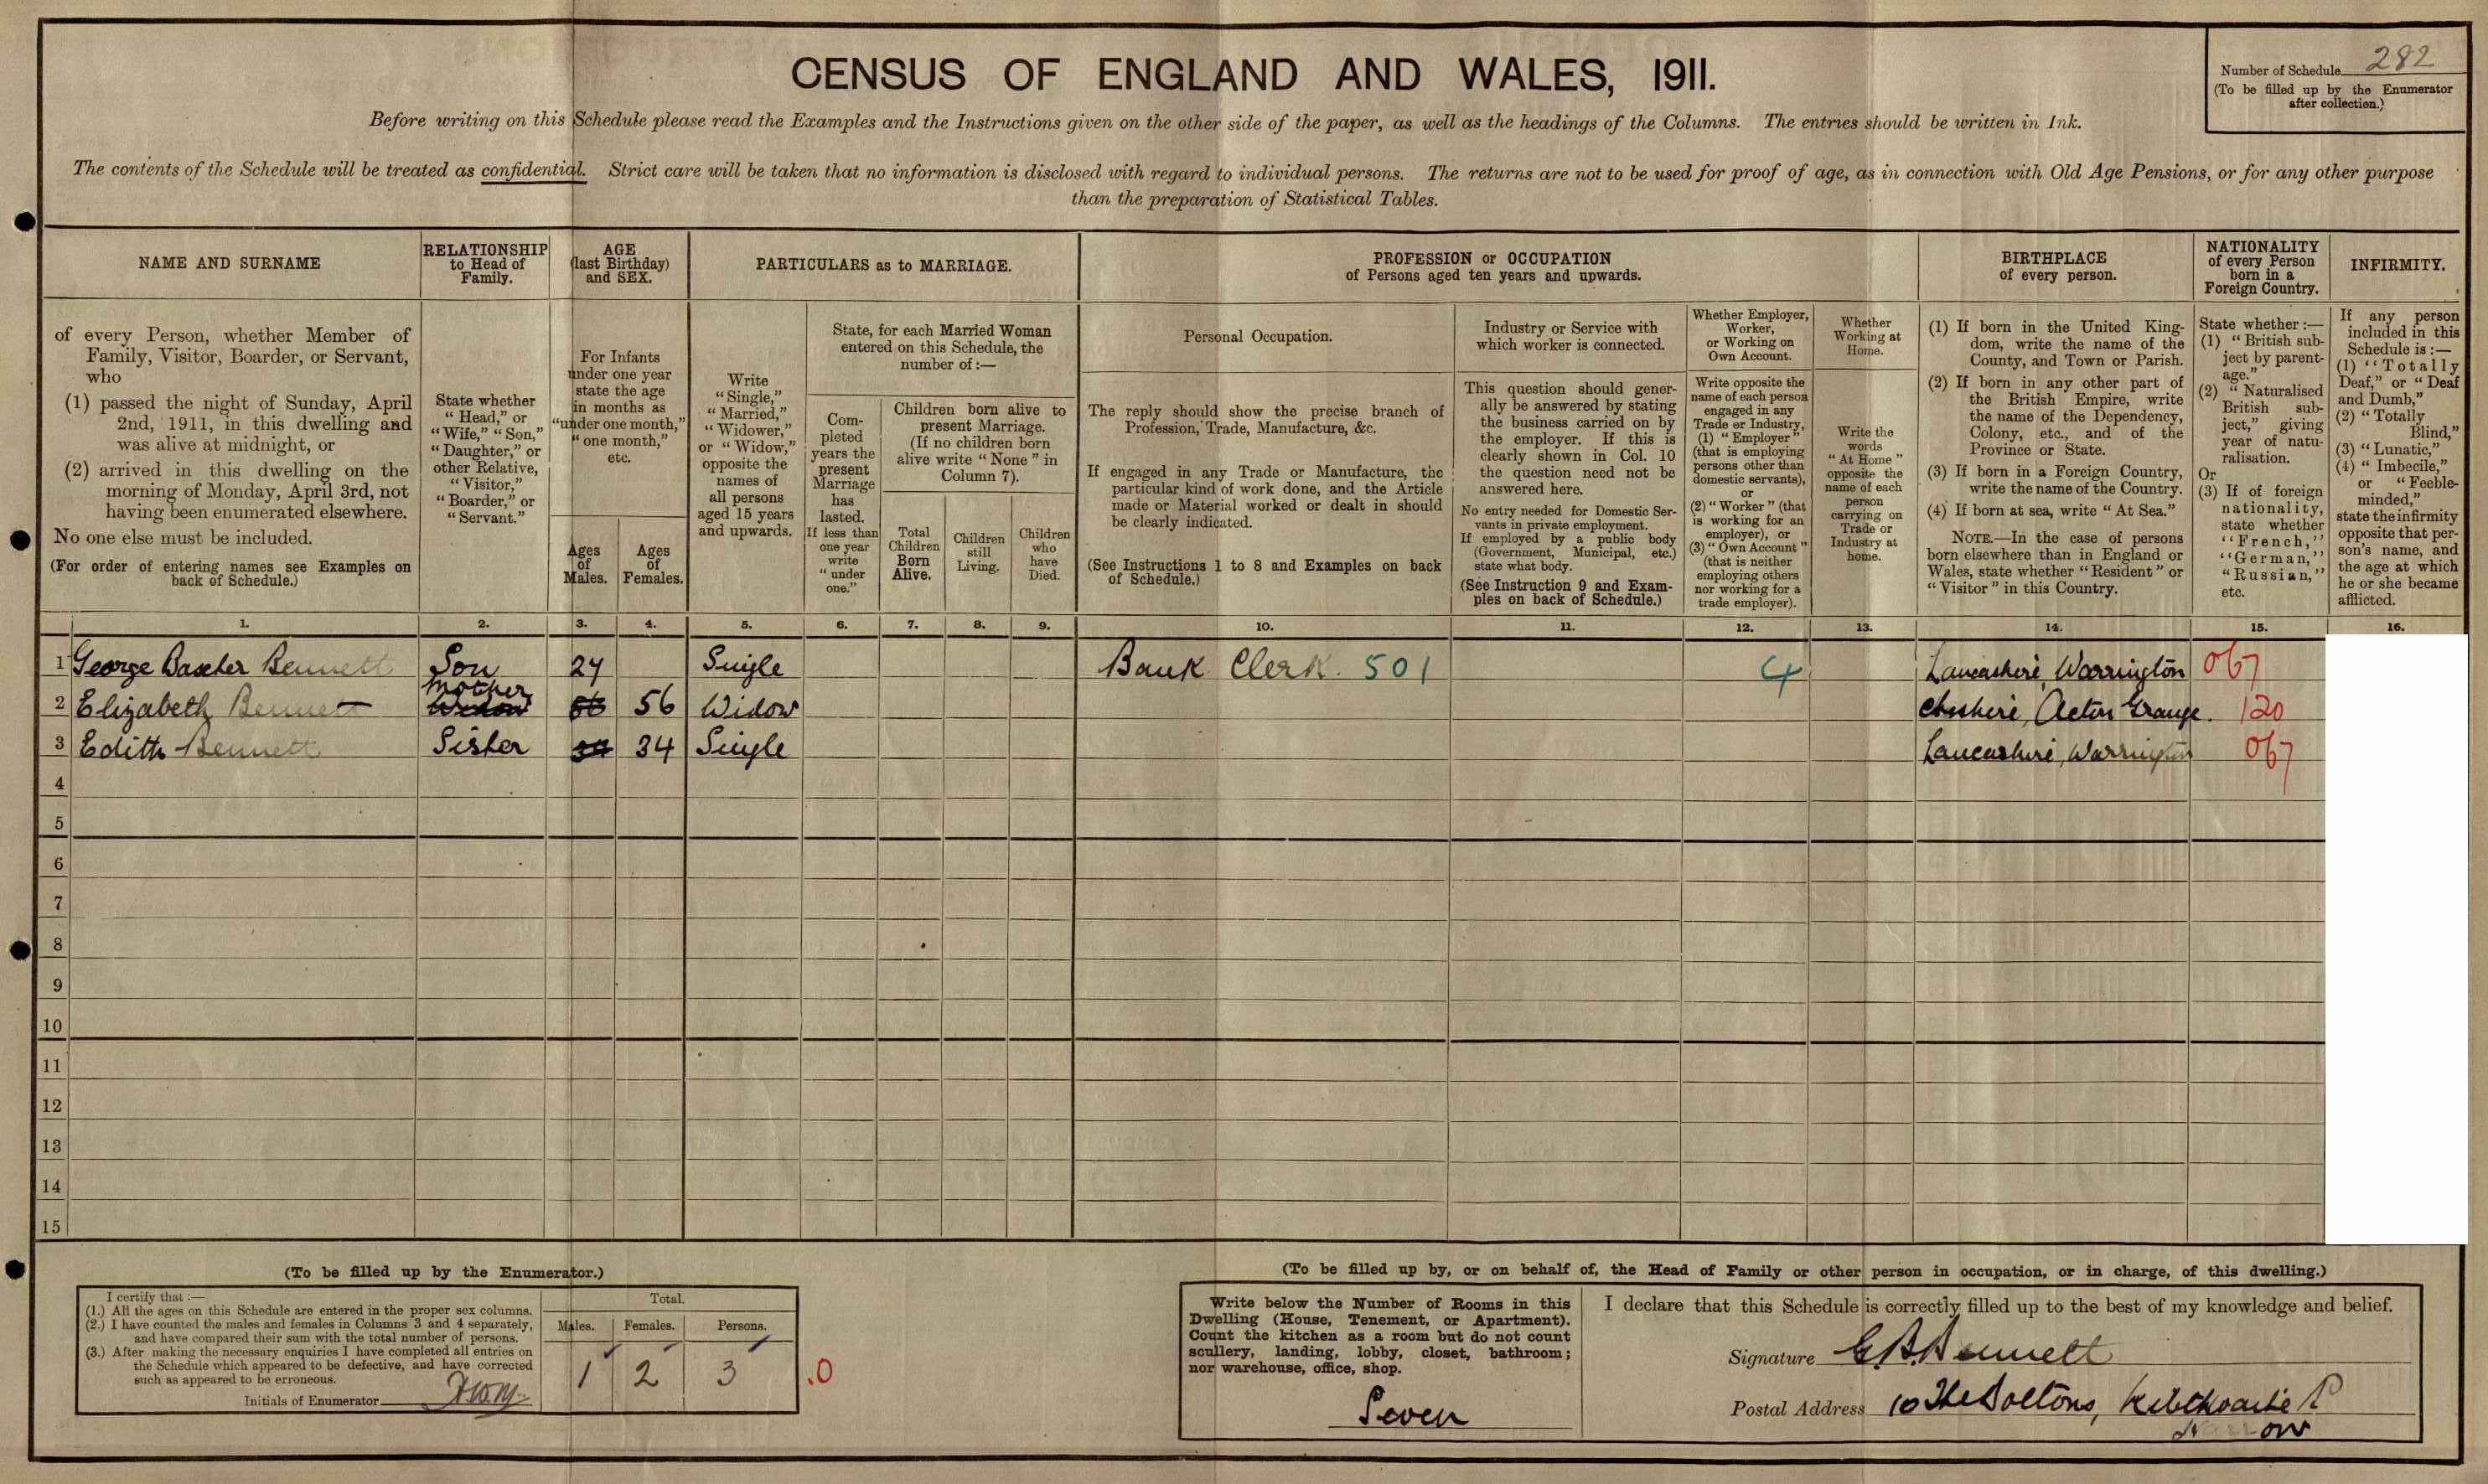 CENSUS OF ENGLAND AND WALES, 1911.
Number of Schedule 282
(To be filled up by the Enumerator
after collection.)
Before writing on this Schedule please read the Examples and the Instructions given on the other side of the paper, as well as the headings of the Columns. The entries should be written in Ink.
The contents of the Schedule will be treated as confidential. Strict care will be taken that no information is disclosed with regard to individual persons. The returns are not to be used for proof of age, as in connection with Old Age Pensions, or for any other purpose
than the preparation of Statistical Tables.
NAME AND SURNAME
of every Person, whether Member of
Family, Visitor, Boarder, or Servant,
who
(1) passed the night of Sunday, April
2nd, 1911, in this dwelling and
was alive at midnight, or
(2) arrived in this dwelling on the
morning of Monday, April 3rd, not
having been enumerated elsewhere.
No one else must be included.
(For order of entering names see Examples on
back of Schedule.)
RELATIONSHIP
to Head of
Family.
State whether
"Head," or
"Wife," "Son,"
"Daughter," or
other Relative,
"Visitor,"
"Boarder," or
"Servant."
AGE
(last Birthday)
and SEX.
For Infants
under one year
state the age
in months as
"under one month,"
"one month,"
etc.
Ages
of
Males.
Ages
of
Females.
PARTICULARS as to MARRIAGE.
Write
"Single,"
"Married,"
"Widower,"
or "Widow,"
opposite the
names of
all persons
aged 15 years
and upwards.
State, for each Married Woman
entered on this Schedule, the
number of :—
Com-
pleted
years the
present
Marriage
has
lasted.
If less than
one year
write
"under
one."
Children born alive to
present Marriage.
(If no children born
alive write "None" in
Column 7).
Total
Children
Born
Alive.
Children
still
Living.
Children
who
have
Died.
PROFESSION or OCCUPATION
of Persons aged ten years and upwards.
Personal Occupation.
The reply should show the precise branch of
Profession, Trade, Manufacture, &c.
If engaged in any Trade or Manufacture, the
particular kind of work done, and the Article
made or Material worked or dealt in should
be clearly indicated.
(See Instructions 1 to 8 and Examples on back
of Schedule.)
Industry or Service with
which worker is connected.
This question should gener-
ally be answered by stating
the business carried on by
the employer. If this is
clearly shown in Col. 10
the question need not be
answered here.
No entry needed for Domestic Ser-
vants in private employment.
If employed by a public body
(Government, Municipal, etc.)
state what body.
(See Instruction 9 and Exam-
ples on back of Schedule.)
Whether Employer,
Worker,
or Working on
Own Account.
Write opposite the
name of each person
engaged in any
Trade or Industry,
(1) "Employer"
(that is employing
persons other than
domestic servants),
or
(2) "Worker" (that
is working for an
employer), or
(3) "Own Account"
(that is neither
employing others
nor working for a
trade employer).
Whether
Working at
Home.
Write the
words
"At Home"
opposite the
name of each
person
carrying on
Trade or
Industry at
home.
BIRTHPLACE
of every person.
(1) If born in the United King-
dom, write the name of the
County, and Town or Parish.
(2) If born in any other part of
the British Empire, write
the name of the Dependency,
Colony, etc., and of the
Province or State.
(3) If born in a Foreign Country,
write the name of the Country.
(4) If born at sea, write "At Sea."
NOTE.—In the case of persons
born elsewhere than in England or
Wales, state whether "Resident" or
"Visitor" in this Country.
NATIONALITY
of every Person
born in a
Foreign Country.
State whether :—
(1) "British sub-
ject by parent-
age."
(2) "Naturalised
British sub-
ject," giving
year of natu-
ralisation.
Or
(3) If of foreign
nationality,
state whether
"French,"
"German,"
"Russian,"
etc.
INFIRMITY.
If any person
included in this
Schedule is :—
(1) "Totally
Deaf," or "Deaf
and Dumb,"
(2) "Totally
Blind,"
(3) "Lunatic,"
(4) "Imbecile,"
or "Feeble-
minded,"
state the infirmity
opposite that per-
son's name, and
the age at which
he or she became
afflicted.
1. 2. 3. 4. 5. 6. 7. 8. 9. 10. 11. 12. 13. 14. 15. 16.
1 George Bennett Son 24 Single Bank Clerk. 501 4 Lancashire, Warrington 067
2 Elizabeth Bennett Mother Widow 56 56 Widow Cheshire, Acton Grange. 120
3 Edith Bennett Sister 34 34 Single Lancashire, Warrington 067
4
5
6
7
8
9
10
11
12
13
14
15
(To be filled up by the Enumerator.)
I certify that :—
(1.) All the ages on this Schedule are entered in the proper sex columns.
(2.) I have counted the males and females in Columns 3 and 4 separately,
and have compared their sum with the total number of persons.
(3.) After making the necessary enquiries I have completed all entries on
the Schedule which appeared to be defective, and have corrected
such as appeared to be erroneous.
Initials of Enumerator
Total.
Males. Females. Persons.
1 2 3 .0
(To be filled up by, or on behalf of, the Head of Family or other person in occupation, or in charge, of this dwelling.)
Write below the Number of Rooms in this
Dwelling (House, Tenement, or Apartment).
Count the kitchen as a room but do not count
scullery, landing, lobby, closet, bathroom;
nor warehouse, office, shop.
Seven
I declare that this Schedule is correctly filled up to the best of my knowledge and belief.
Signature G.B.Bennett
Postal Address 10 The Boltons,
Harrow